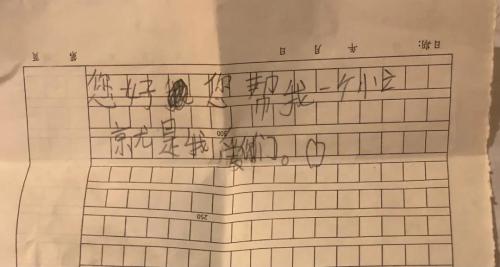 日期: 年 月 日 第 页
您好 您帮我一个小
就是我爱你们。
300
250